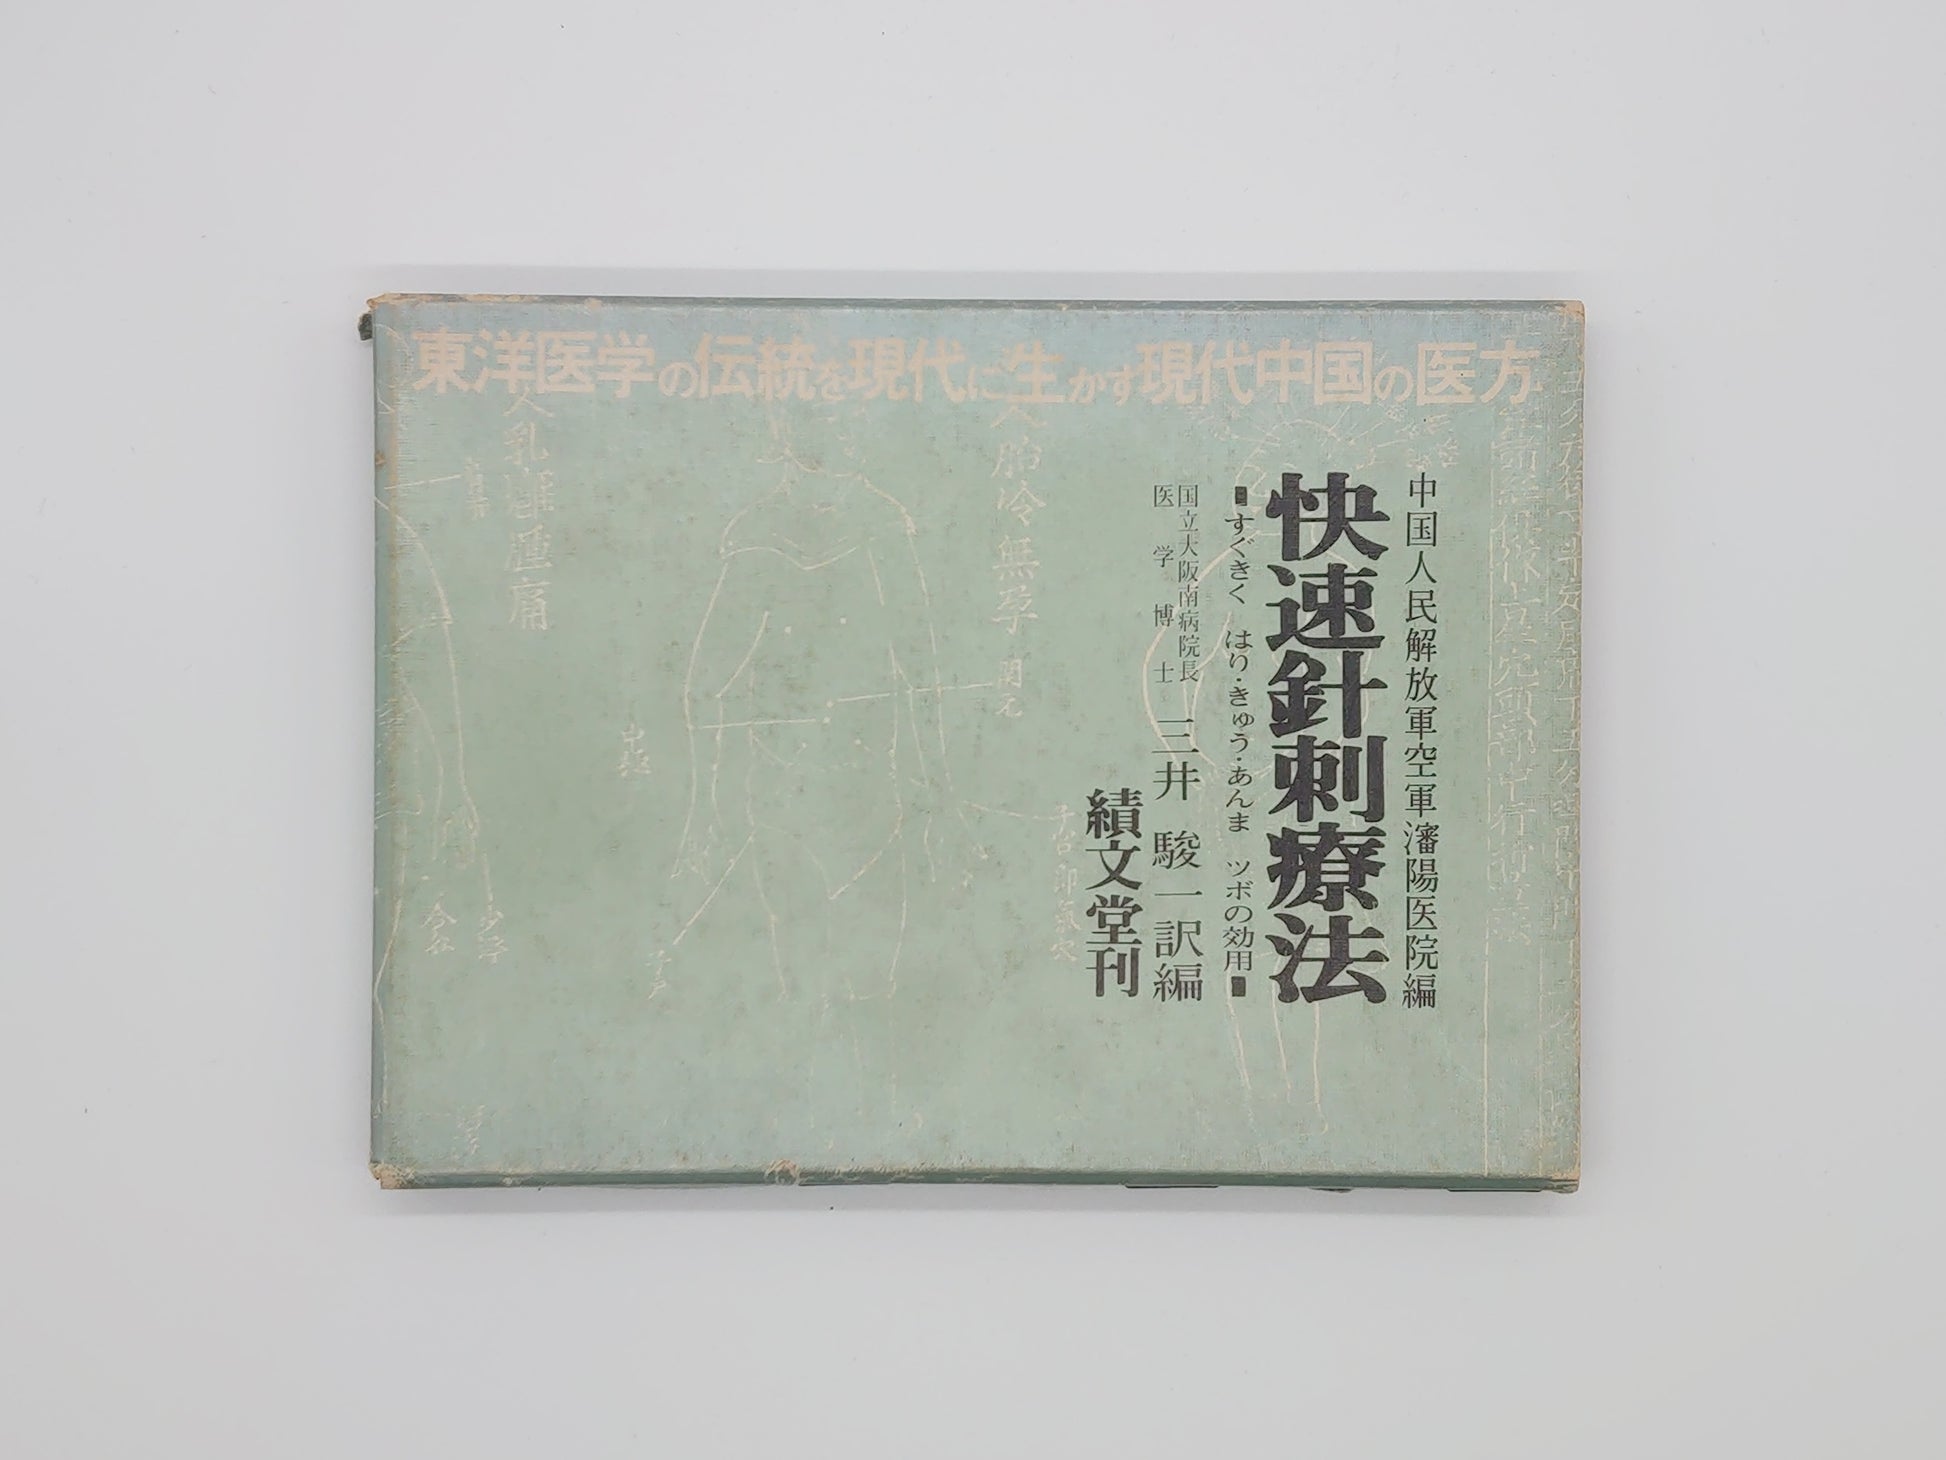 東洋医学の伝統を現代に生かす現代中国の医方
中国人民解放軍空軍瀋陽医院編
快速針刺療法
■すぐきく はり・きゅう・あんま ツボの効用■
国立大阪南病院長
医学博士
三井駿一訳編
績文堂刊
人胎冷無孕
関元
子戸
人乳雍腫痛